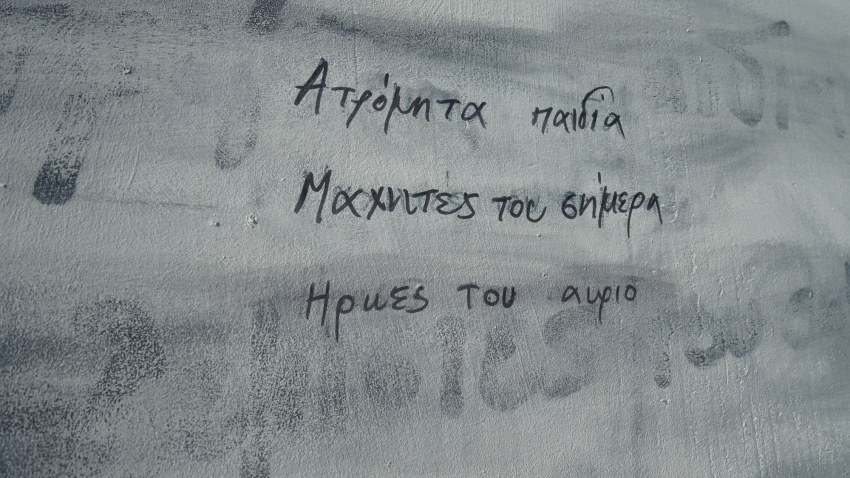 Ατρόμητα παιδία
Μαχητές του σήμερα
Ηρωες του αυριο